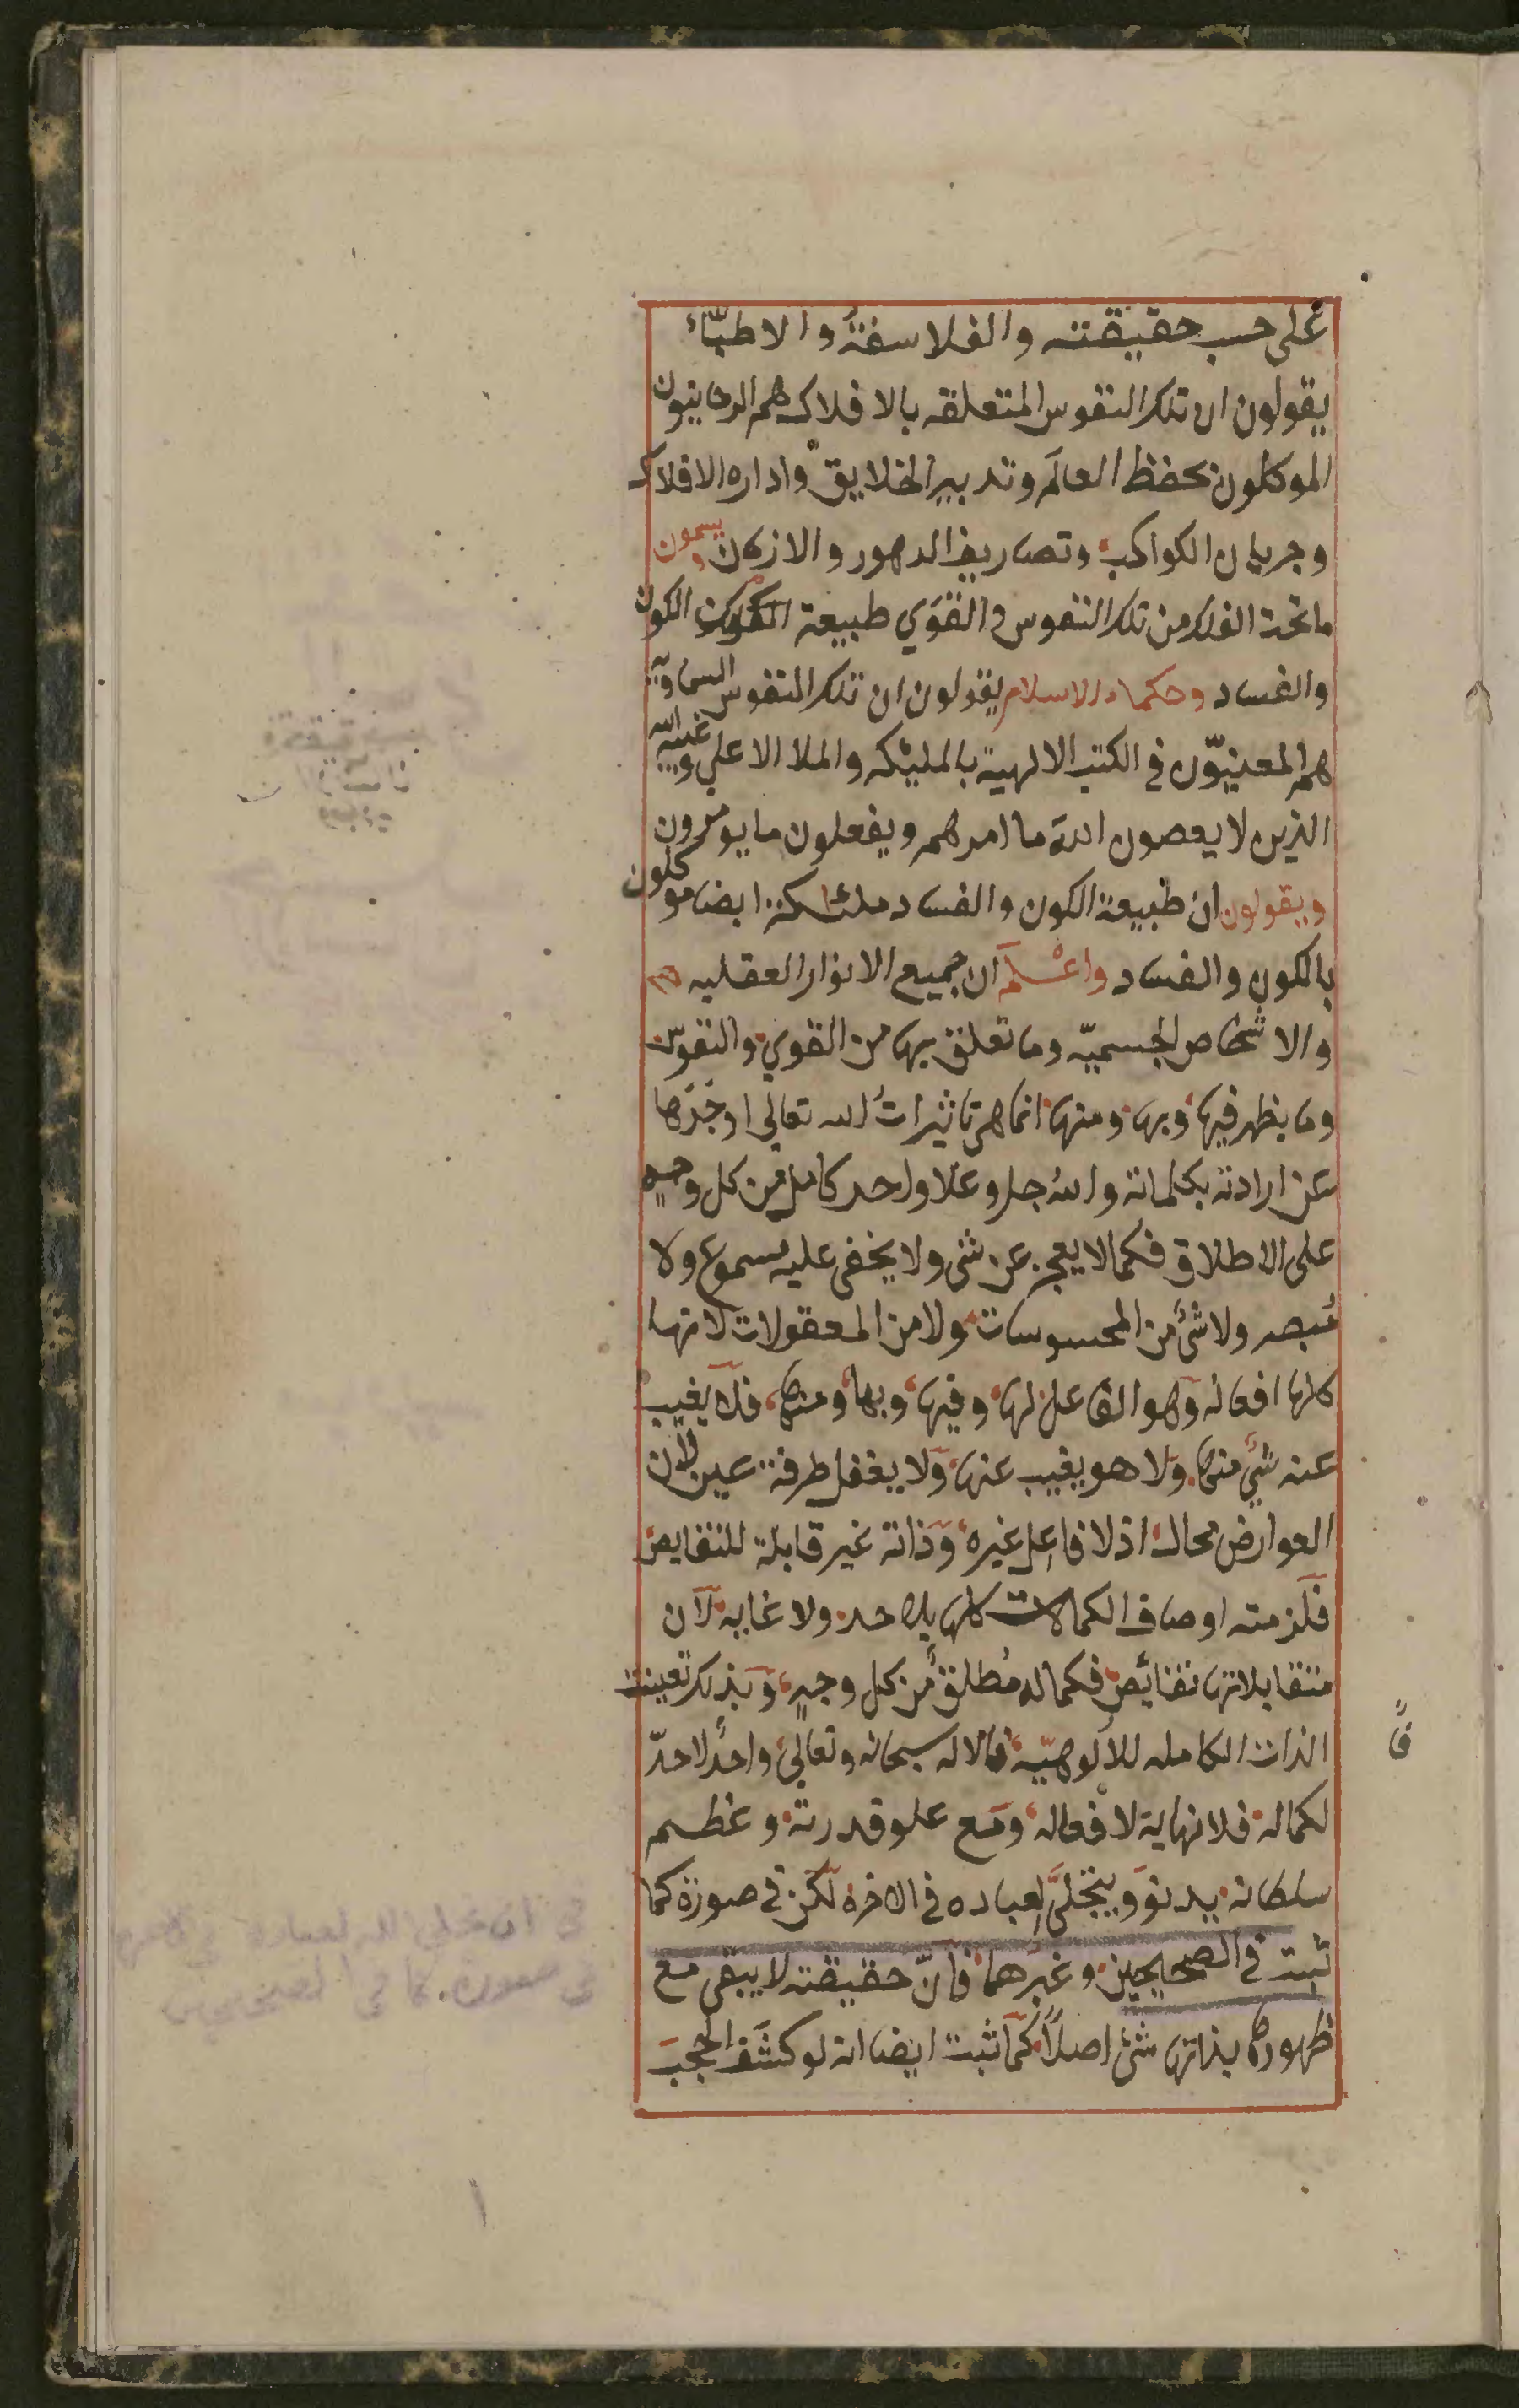 على حسب حقيقته والفلاسفةُ والاطبّاء
يقولون ان تلك النفوس المتعلقه بالافلاك هم الروحانيون
الموكلون بحفظ العالَم وتدبير الخلايق واداره الافلاك
وجريان الكواكب وتصاريف الدهور والازمان ويسمون
ما تحت الفلك من تلك النفوس والقوَي طبيعة الكون
والفساد وحكماء الاسلام يقولون ان تلك النفوس السماويه
هم المعنيّون في الكتب الالهية بالمليكه والملا الاعلي وغيبه الله
الذين لا يعصون الله ما امرهم ويفعلون ما يومرون
ويقولون ان طبيعة الكون والفساد ملئكة ايضا موكلون
بالكون والفساد واعْلَم ان جميع الانوار العقليه
والاشخاص الجسميّه وما تعلق بها من القوي والنفوس
وما يظهر فيها وبها ومنها انما هي تاثيراتُ الله تعالي اوجَدَها
عن ارادته بكلماته والله جل وعلا واحد كامل من كل وجه
على الاطلاق فكما لا يعجز عن شي ولا يخفى عليه مسموع ولا
مُبصر ولا شئ من المحسوسات ولا من المعقولات لانها
كلها افعاله وهو الفاعل لها وفيها وبها ومنها فلا يغيب
عنه شئ منها ولا هو يغيب عنها ولا يغفل طرفة عين لان
العوارض محال اذ لا فاعل غيره وذاته غير قابلة للنقايص
فلزمته اوصاف الكمالات كلها بلا حد ولا غايه لان
متقابلاتها نقائص فكماله مُطلق من كل وجهٍ وبذلك تعينت
الذات الكامله للالوهيّه فالاله سبحانه وتعالي واحد لا حدّ
لكماله فلا نهاية لافعاله ومع علو قدرته وعظم
سلطانه يدنو ويتجلّى لعباده في الاخره لكن في صورة كما
ثبت في الصحيحين وغيرهما فانّ حقيقته لا يبقى مع
ظهورها بذاتها شئ اصلاً كما ثبت ايضا انه لو كشَف الحجبَ
في ان تجلي الله لعباده في الاخره
في صورة. كما في الصحيحين